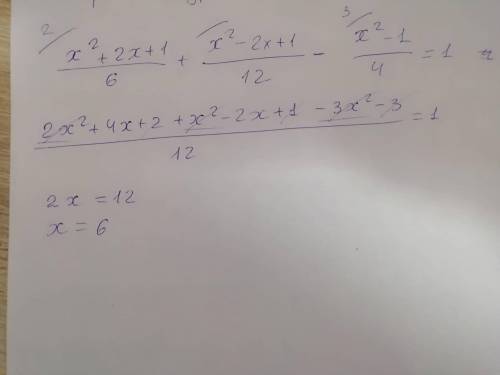 2 3
(x² + 2x + 1)/6 + (x² - 2x + 1)/12 - (x² - 1)/4 = 1
(2x² + 4x + 2 + x² - 2x + 1 - 3x² - 3)/12 = 1
2x = 12
x = 6